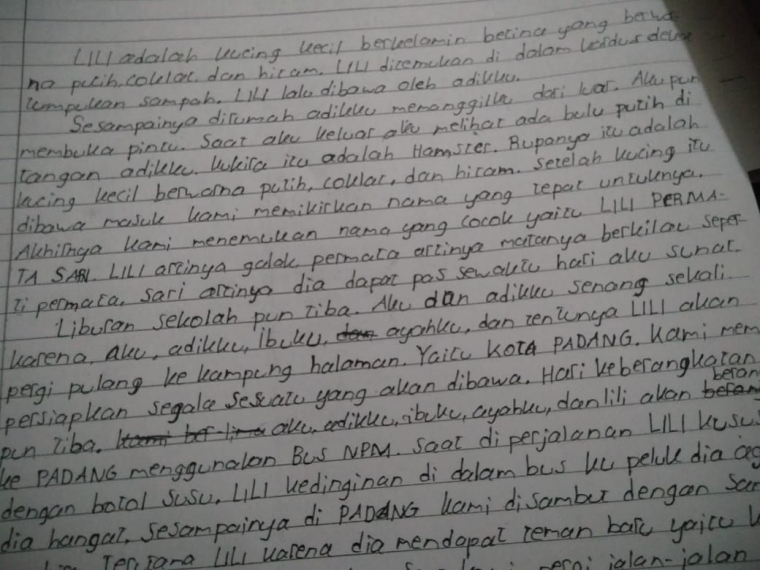 LILI adalah kucing kecil berkelamin betina yang berwa-
na putih, coklat, dan hitam. LILI ditemukan di dalam kardus dekat
tumpukan sampah. LILI lalu dibawa oleh adikku.
Sesampainya dirumah adikku memanggilku dari luar. Aku pun
membuka pintu. Saat aku keluar aku melihat ada bulu putih di
tangan adikku. kukira itu adalah Hamster. Rupanya itu adalah
kucing kecil berwarna putih, coklat, dan hitam. setelah kucing itu
dibawa masuk kami memikirkan nama yang tepat untuknya.
Akhirnya kami menemukan nama yang cocok yaitu LILI PERMA-
TA SARI. LILI artinya galak, permata artinya matanya berkilau seper-
ti permata, sari artinya dia dapat pas sewaktu hari aku sunat.
Liburan sekolah pun tiba. Aku dan adikku senang sekali.
karena, aku, adikku, ibuku, dan ayahku, dan tentunya LILI akan
pergi pulang ke kampung halaman. Yaitu KOTA PADANG. Kami mem
persiapkan segala sesuatu yang akan dibawa. Hari keberangkatan
pun tiba. aku, adikku, ibuku, ayahku, dan lili akan beran
ke PADANG menggunakan BUS NPM. Saat di perjalanan LILI kususu
dengan botol susu. LILI kedinginan di dalam bus ku peluk dia
dia hangat. Sesampainya di PADANG kami disambut dengan
Terutama LILI karena dia mendapat teman baru yaitu
pergi jalan-jalan